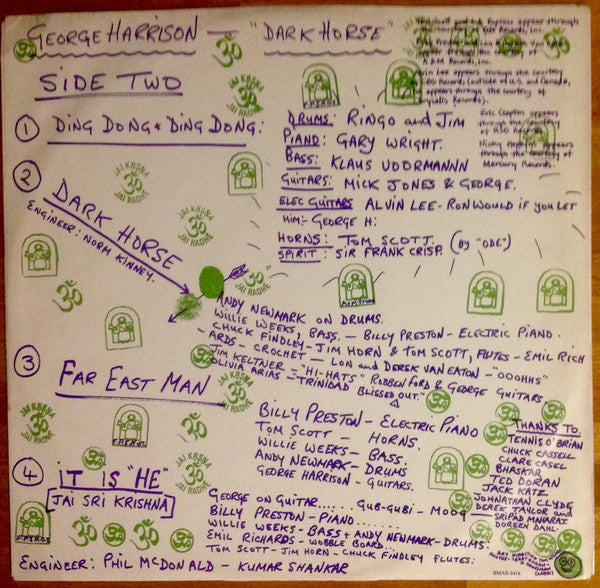 GEORGE HARRISON — "DARK HORSE"
SIDE TWO
① DING DONG; DING DONG:
DRUMS: RINGO and JIM
PIANO: GARY WRIGHT.
BASS: KLAUS VOORMANNN
GUITARS: MICK JONES & GEORGE.
ELEC GUITARS ALVIN LEE - RON WOULD IF YOU LET
HIM:- GEORGE H:
HORNS: TOM SCOTT. (BY "ODE")
SPIRIT: SIR FRANK CRISP.
appear through
Records, Inc.
A&M Records, Inc.
Alvin Lee appears through the courtesy
CBS Records (outside of U.S. and Canada,
he appears through the courtesy of
Chrysalis Records).
Eric Clapton appears
through the courtesy
of RSO Records.
Nicky Hopkins appears
through the courtesy of
Mercury Records.
② DARK HORSE
ENGINEER: NORM KINNEY.
ANDY NEWMARK ON DRUMS.
WILLIE WEEKS, BASS. — BILLY PRESTON - ELECTRIC PIANO.
CHUCK FINDLEY - JIM HORN & TOM SCOTT, FLUTES - EMIL RICH
- ARDS - CROCHET - LON and DEREK VAN EATON - "OOOHHS"
JIM KELTNER = "HI-HATS" ROBBEN FORD & GEORGE GUITARS
OLIVIA ARIAS - "TRINIDAD BLISSED OUT."
③ FAR EAST MAN
BILLY PRESTON - ELECTRIC PIANO
TOM SCOTT - HORNS.
WILLIE WEEKS - BASS.
ANDY NEWMARK - DRUMS
GEORGE HARRISON - GUITARS.
THANKS TO.
TENNIS O'BRIAN
CHUCK CASSELL
CLARE CASEL
BHASKAR
TED DORAN
JACK KATZ
JOHNATHAN CLYDE
DEREK TAYLOR and
SRIPAD MAHARAJ.
DOREEN DAHL.
④ IT IS "HE"
JAI SRI KRISHNA
GEORGE ON GUITAR..... GUB-GUBI - MOOG
BILLY PRESTON - PIANO.......
WILLIE WEEKS - BASS + ANDY NEWMARK - DRUMS.
EMIL RICHARDS - WOBBLE BOARD..
TOM SCOTT - JIM HORN - CHUCK FINDLEY FLUTES.
ENGINEER: PHIL McDONALD - KUMAR SHANKAR
JAI KRSNA
ॐ
JAI RADHE
F.P.S.H.O.T.
SMAS-3418